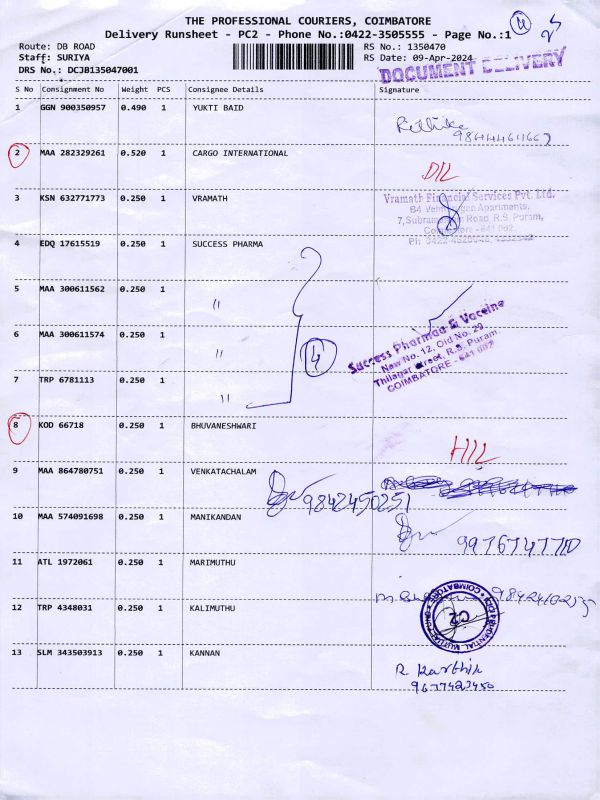 THE PROFESSIONAL COURIERS, COIMBATORE
4
Delivery Runsheet - PC2 - Phone No.:0422-3505555 - Page No.:1
Route: DB ROAD
RS No.: 1350470
Staff: SURIYA
RS Date: 09-Apr-2024
DRS No.: DCJB135047001
DOCUMENT DELIVERY
S No Consignment No Weight PCS Consignee Details Signature
1 GGN 900350957 0.490 1 YUKTI BAID
Rithika
2 MAA 282329261 0.520 1 CARGO INTERNATIONAL
D/L
3 KSN 632771773 0.250 1 VRAMATH
Vramath Financial Services Pvt. Ltd.
Apartments,
Road R.S. Puram,
641 002.
4 EDQ 17615519 0.250 1 SUCCESS PHARMA
5 MAA 300611562 0.250 1 "
6 MAA 300611574 0.250 1 "
4
Success Pharma & Vaccine
New No. 12, Old No. 29
Thilagar Street, R.S. Puram
COIMBATORE - 641 002
7 TRP 6781113 0.250 1 "
8 KOD 66718 0.250 1 BHUVANESHWARI
H/L
9 MAA 864780751 0.250 1 VENKATACHALAM
9842450251
10 MAA 574091698 0.250 1 MANIKANDAN
11 ATL 1972061 0.250 1 MARIMUTHU
12 TRP 4348031 0.250 1 KALIMUTHU
13 SLM 343503913 0.250 1 KANNAN
R Karthik
9677423450